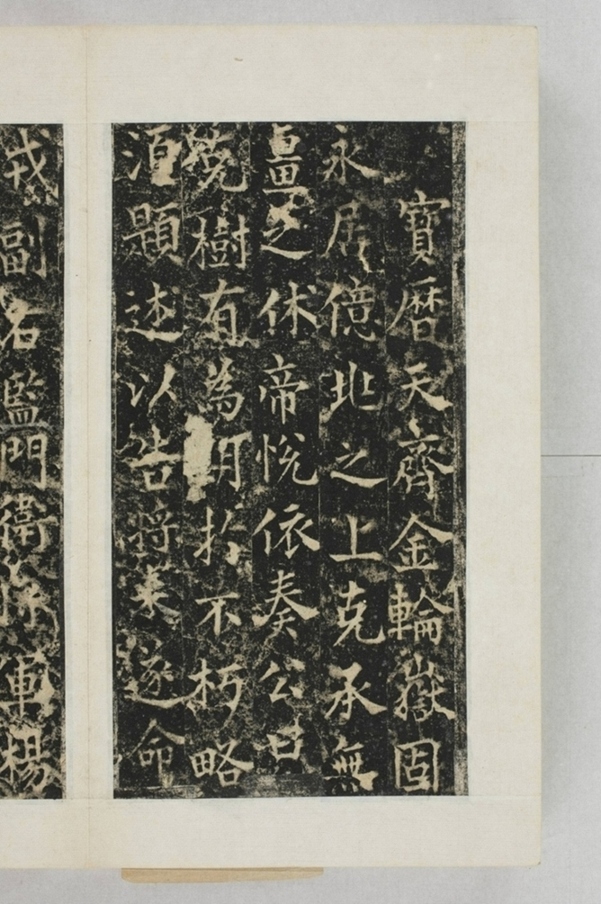 寶曆天齊金輪嶽固
永居億兆之上克承無
畺之休帝悅依奏公曰
樹有為期於不朽略
湏題述以告将来遂命
戎副右監門衛將軍楊